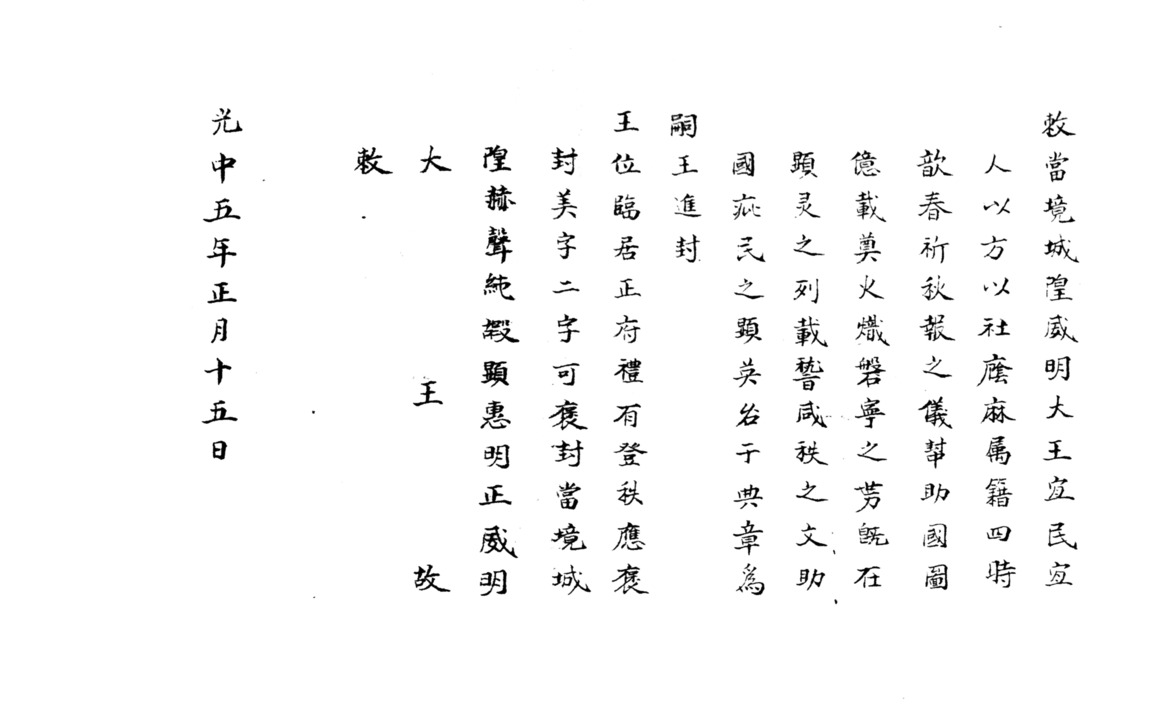 敕當境城隍威明大王宜民宜
人以方以社庥麻属籍四時
歆春祈秋報之儀幇助國圖
億載奠火熾磐寧之势旣在
顕灵之列載稽咸秩之文助
國庇民之顕英台于典章爲
嗣王進封
王位臨居正府禮有登秩應褒
封美字二字可褒封當境城
隍赫聲純嘏顕惠明正威明
大王故
敕
光中五年正月十五日